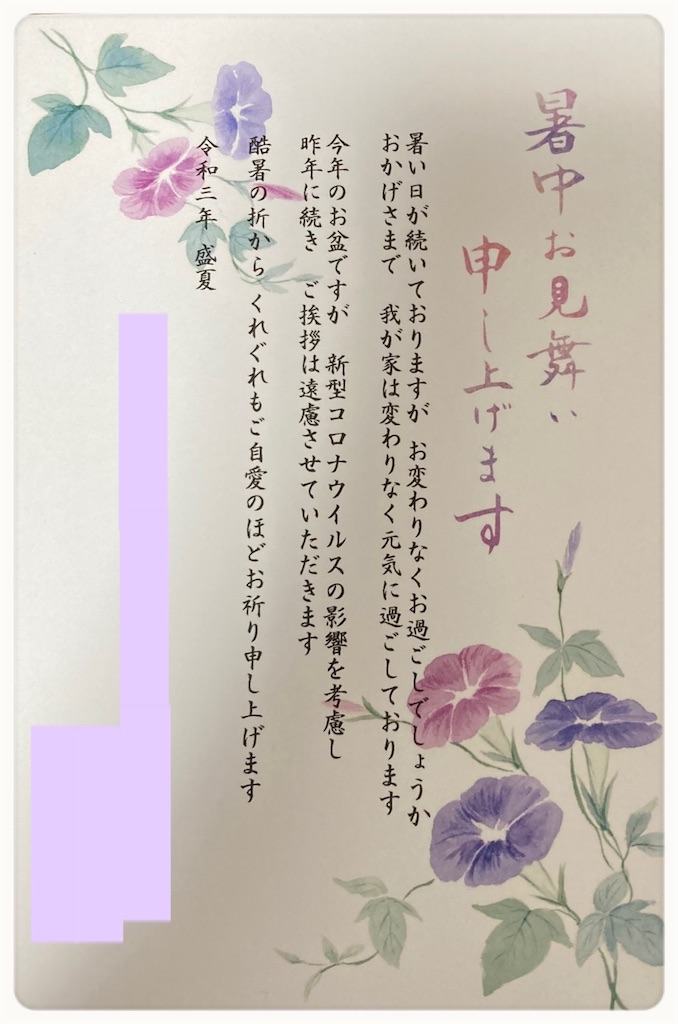 暑中お見舞い
申し上げます
暑い日が続いておりますが　お変わりなくお過ごしでしょうか
おかげさまで　我が家は変わりなく元気に過ごしております
今年のお盆ですが　新型コロナウイルスの影響を考慮し
昨年に続き　ご挨拶は遠慮させていただきます
酷暑の折から　くれぐれもご自愛のほどお祈り申し上げます
令和三年　盛夏